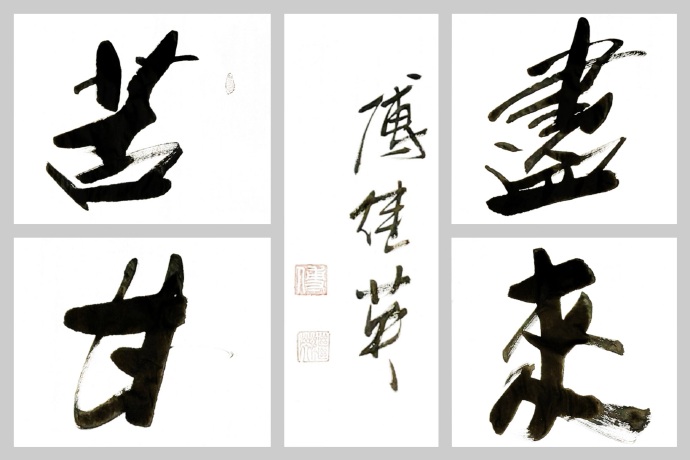 苦盡
甘來
傅佳
傅